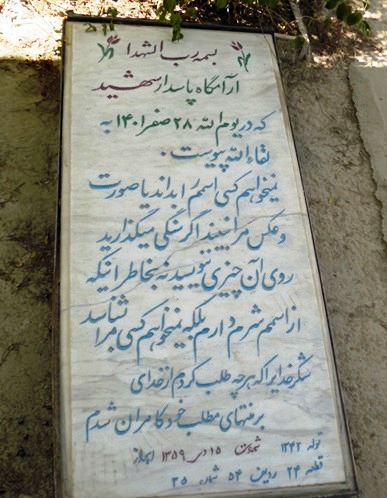 بسمه رب الشهدا
آرامگاه پاسدار شهید
که در یوم الله ۲۸ صفر ۱۴۰۱ به
لقاء الله پیوست.
نمیخواهم کسی اسم را بداند یا صورت
و عکس مرا ببیند اگر سنگی میگذارید
روی آن چیزی ننویسید نه بخاطر اینکه
از اسمم شرم دارم بلکه نمیخواهم کسی مرا بشناسد
شکر خدایرا که هر چه طلب کردم از خدای
بر منتهای مطلب خود کامران شدم
تولد ۱۳۴۲ شهادت ۱۵ دی ۱۳۵۹ اهواز
قطعه ۲۴ ردیف ۵۴ شماره ۳۵